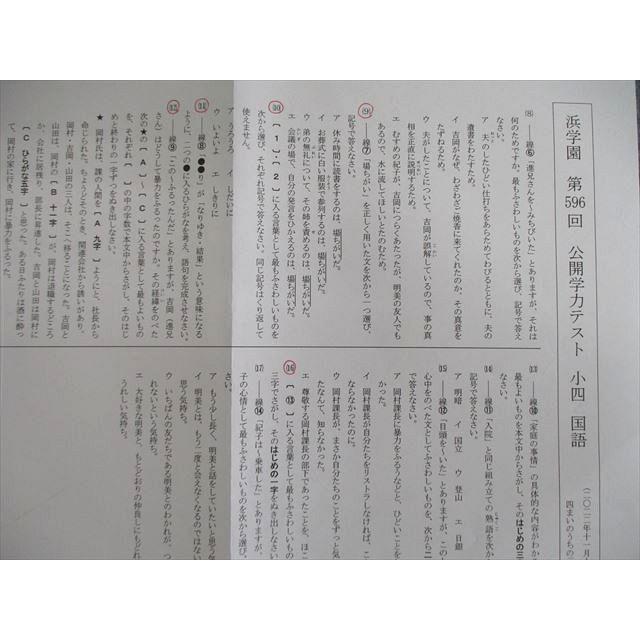 浜学園　第596回　公開学力テスト　小四　国語
(二〇二二年十一月
四まいのうちの
⑻　――線⑥「進兄さんをくみちびいた」とありますが、それは
何のためですか。最もふさわしいものを次から選び、記号で答え
なさい。
ア　夫のしたひどい仕打ちをあらためてわびるとともに、夫の
遺書をわたすため。
イ　吉岡がなぜ、わざわざご焼香に来てくれたのか、その真意を
たずねるため。
ウ　夫がしたことについて、吉岡が誤解しているので、事の真
相を正直に説明するため。
エ　むすめの紀子が、吉岡につらくあたったが、明美の友人でも
あるので、水に流してほしいとたのむため。
⑼　――線⑦「場ちがい」を正しく用いた文を次から一つ選び、
記号で答えなさい。
ア　休み時間に読書をするのは、場ちがいだ。
イ　お葬式に白い服装で参列するのは、場ちがいだ。
ウ　弟の無礼について、その姉を責めるのは、場ちがいだ。
エ　会議の場で、自分の発言をひかえるのは、場ちがいだ。
⑽　〔　1　〕・〔　2　〕に入る言葉として最もふさわしいものを
次から選び、それぞれ記号で答えなさい。同じ記号はくり返して
使えません。
ア　うろうろ　イ　しだいに
ウ　いよいよ　エ　しきりに
⑾　――線⑧「●●り」が「なりゆき・結果」という意味になる
ように、二つの●に入るひらがなを考え、語句を完成させなさい。
⑿　――線⑨「このくふるったんだ」とありますが、吉岡（進兄
さん）はどうして暴力をふるったのですか。その経緯をのべた
次の★の〔　A　〕～〔　C　〕に入る言葉として最もよいもの
を、それぞれ〔　〕の中の字数で本文中からさがし、そのはじ
めと終わりの一字ずつをぬき出しなさい。
★　岡村氏は、課の人間を〔　A　九字　〕ようにと、社長から
命じられた。ちょうどそのとき、関連会社から誘いがあり、
岡村・吉岡・山田の三人は、そこへ移ることになった。吉岡と
山田は、岡村の〔　B　十一字　〕が、岡村は退職するどころ
か、会社に居残り、部長に昇進した。吉岡と山田は岡村に
〔　C　ひらがな五字　〕と思った。ある日ふたりは酒に酔っ
て、岡村の家に行き、岡村に暴力をふるった。
⒀　――線⑩「家庭の事情」の具体的な内容がわか
最もよいものを本文中からさがし、そのはじめの三
なさい。
⒁　――線⑪「入院」と同じ組み立ての熟語を次か
記号で答えなさい。
ア　明暗　イ　国立　ウ　登山　エ　日銀
⒂　――線⑫「目頭を～いた」とありますが、この
心中をのべた文としてふさわしいものを、次から二
で答えなさい。
ア　岡村課長に暴力をふるうなどと、ひどいことを
かった。
イ　岡村課長が自分たちをリストラしなければ、こ
ならなかったのに。
ウ　岡村課長が、まさか自分たちのことをずっと気
たなんて、知らなかった。
エ　尊敬する岡村課長の部下であったことを、ほこ
⒃　〔　⑬　〕に入る言葉として最もふさわしいもの
三字でさがし、そのはじめの一字をぬき出しなさい
⒄　――線⑭「紀子は～乗車した」とありますが、
子の心情として最もふさわしいものを次から選び、
さい。
ア　もう少し長く、明美と話をしていたいと思う気
イ　明美とは、もう二度と会えなくなるのではない
思う気持ち。
ウ　いちばんの友だちである明美とのわかれが、つ
れないという気持ち。
エ　大好きな明美と、もとどおりの仲良しにもどれ
うれしい気持ち。